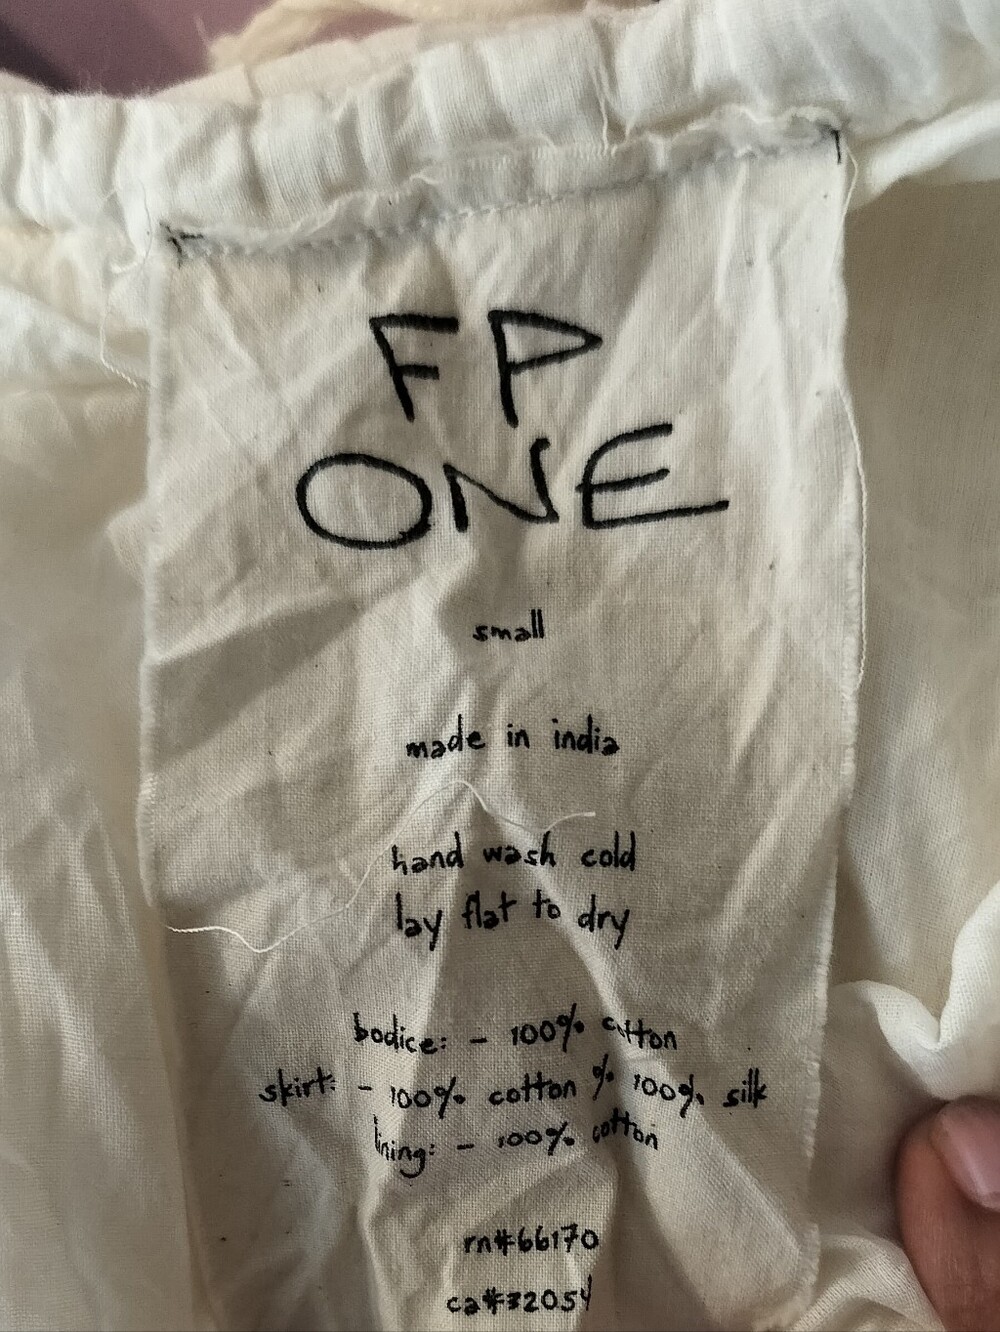 FP
ONE
small
made in india
hand wash cold
lay flat to dry
bodice: - 100% cotton
skirt: - 100% cotton % 100% silk
lining: - 100% cotton
rn#66170
ca#32054